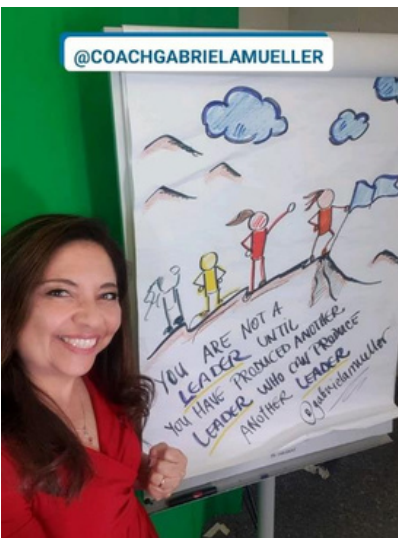 @COACHGABRIELAMUELLER
YOU ARE NOT A
LEADER UNTIL
YOU HAVE PRODUCED ANOTHER
LEADER WHO CAN PRODUCE
ANOTHER LEADER
@gabrielamueller